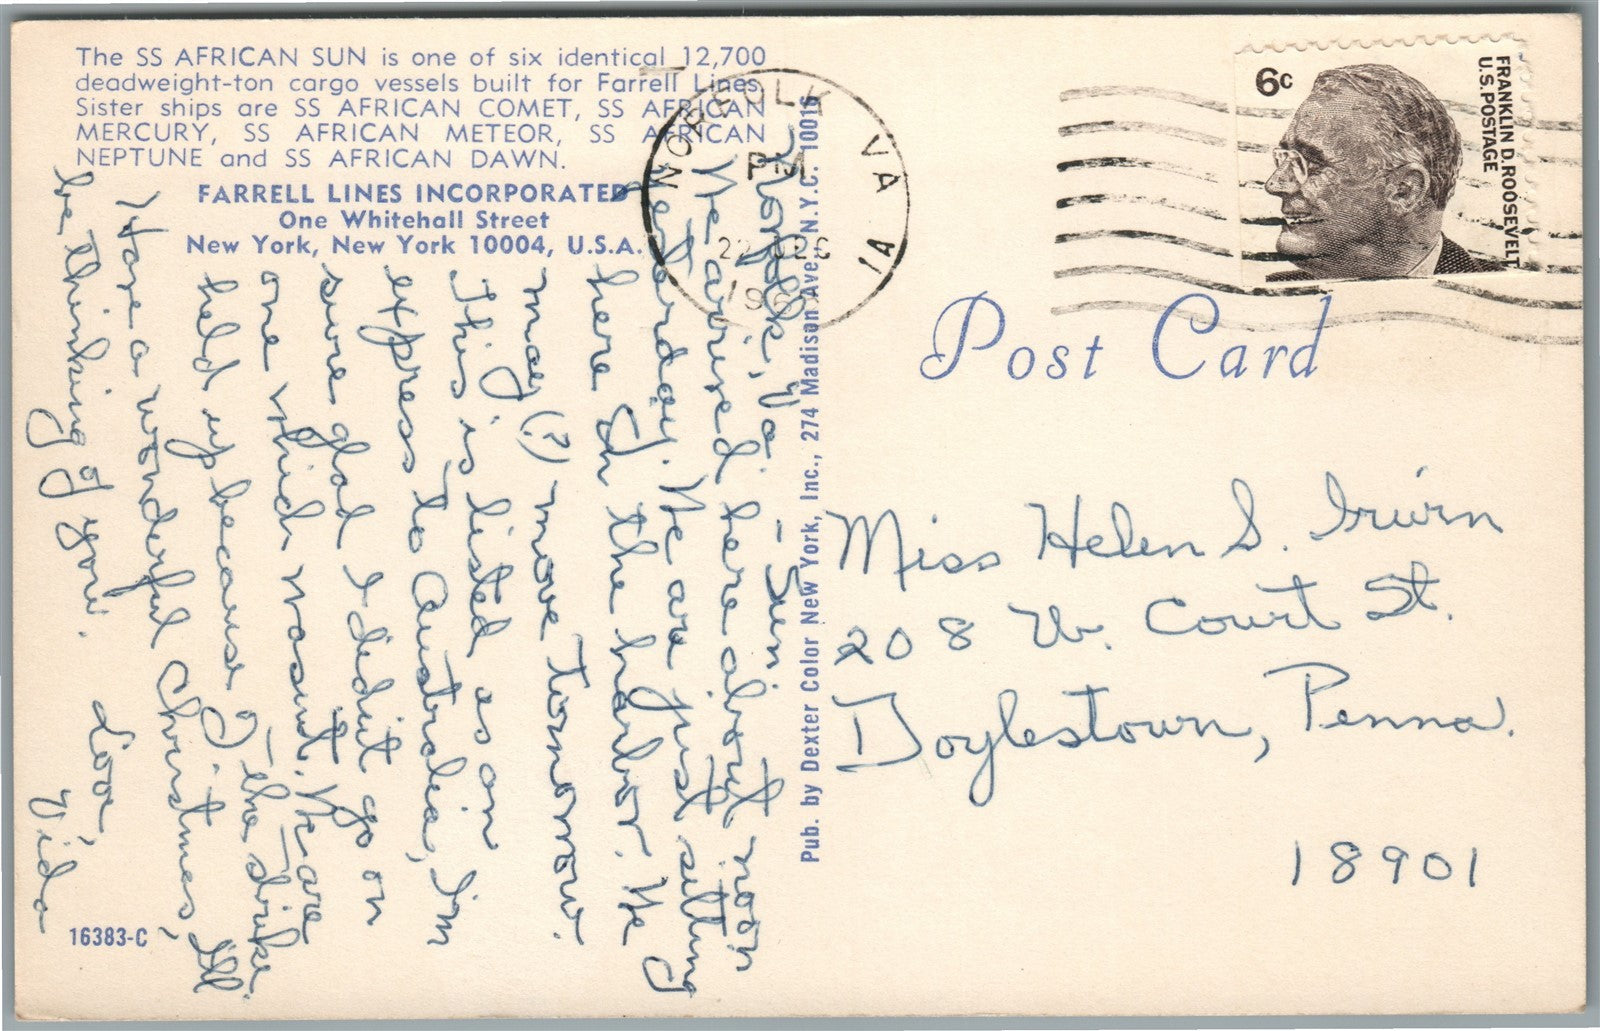 The SS AFRICAN SUN is one of six identical 12,700
deadweight-ton cargo vessels built for Farrell Lines.
Sister ships are SS AFRICAN COMET, SS AFRICAN
MERCURY, SS AFRICAN METEOR, SS AFRICAN
NEPTUNE and SS AFRICAN DAWN.
FARRELL LINES INCORPORATED
One Whitehall Street
New York, New York 10004, U.S.A.
Norfolk, Va. - Sun.
We arrived here about noon
yesterday. We are just sitting
here in the harbor. We
may (?) move tomorrow.
This is listed as an
express to Australia, I'm
sure glad I didn't go on
one which wasn't. We are
held up because of the strike.
Have a wonderful Christmas, I'll
be thinking of you.
Love,
Vida
16383-C
Pub. by Dexter Color New York, Inc., 274 Madison Ave., N.Y.C. 10016
NORFOLK VA
PM
22 DEC
196
1A
6c
FRANKLIN D. ROOSEVELT
U.S. POSTAGE
Post Card
Miss Helen S. Irwin
208 W. Court St.
Doylestown, Penna.
18901